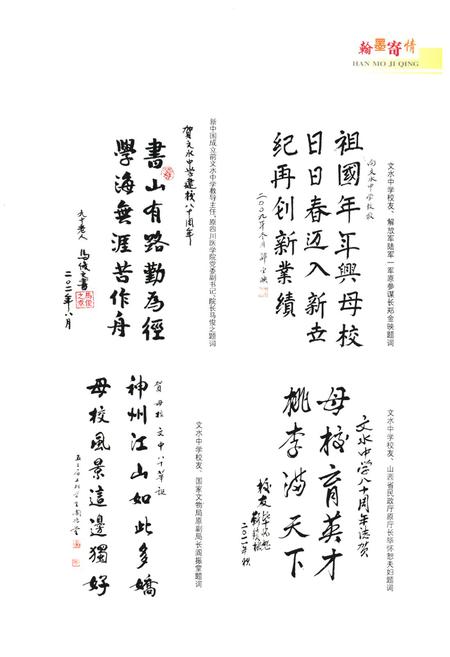 翰墨寄情
HAN MO JI QING
文水中学校友、解放军陆军一军原参谋长郑金映题词
向文水中学校敬
祖國年年興母校
日日春迈入新世
纪再创新業績
二〇〇九年冬月
新中国成立前文水中学教导主任、原四川医学院党委副书记、院长马俊之题词
贺文水中学建校八十周年
書山有路勤為徑
學海無涯苦作舟
九十老人 馬俊之書
二〇一一年八月
马俊之章
文水中学校友、山西省民政厅原厅长毕怀恕夫妇题词
文水中学八十周年志贺
母校育英才
桃李满天下
校友
二〇一一年秋
文水中学校友、国家文物局原副局长阎振堂题词
贺母校文中八十华诞
神州江山如此多嬌
母校風景這邊獨好